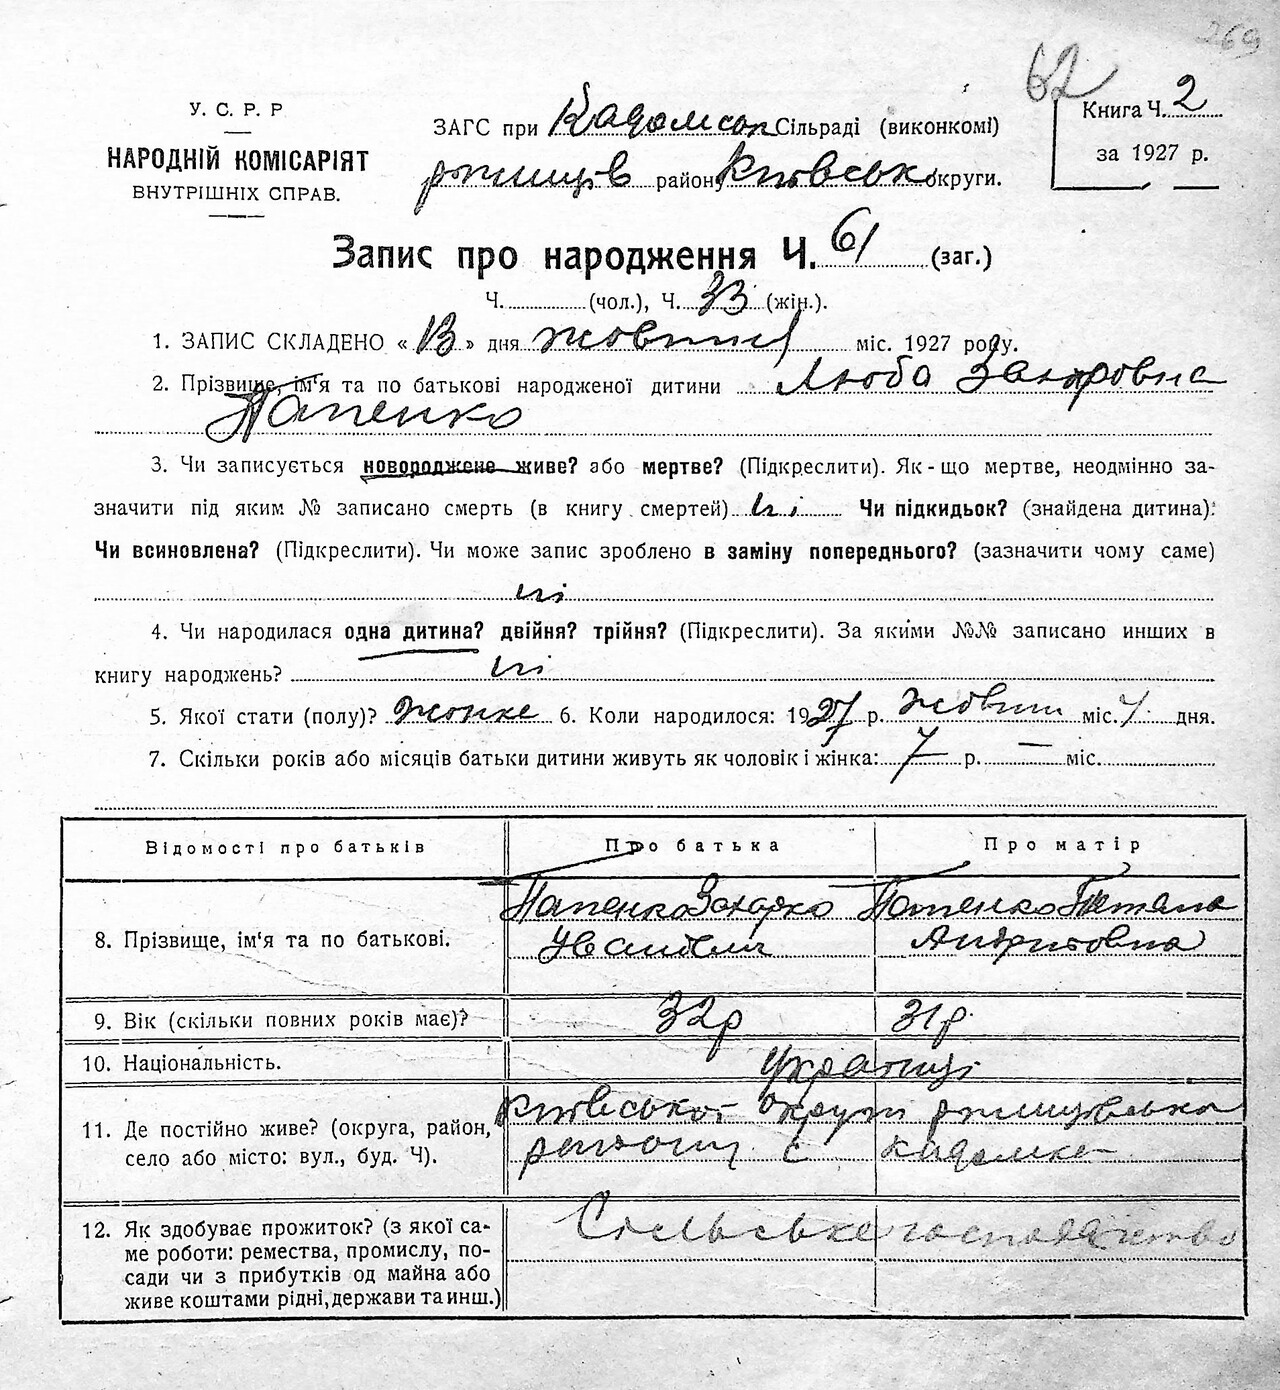 269
62
У. С. Р. Р
НАРОДНІЙ КОМІСАРІЯТ
ВНУТРІШНІХ СПРАВ.
ЗАГС при Кадомськ Сільраді (виконкомі)
ржищів район, Київськ округи.
Книга Ч. 2
за 1927 р.
Запис про народження Ч. 61 (заг.)
Ч. (чол.), Ч. 33 (жін.).
1. ЗАПИС СКЛАДЕНО « 13 » дня жовтня міс. 1927 року.
2. Прізвище, ім'я та по батькові народженої дитини Люба Захаровна
Папенко
3. Чи записується новороджене живе? або мертве? (Підкреслити). Як-що мертве, неодмінно за-
значити під яким № записано смерть (в книгу смертей) ні Чи підкидьок? (знайдена дитина).
Чи всиновлена? (Підкреслити). Чи може запис зроблено в заміну попереднього? (зазначити чому саме)
ні
4. Чи народилася одна дитина? двійня? трійня? (Підкреслити). За якими №№ записано инших в
книгу народжень? ні
5. Якої стати (полу)? жоноче 6. Коли народилося: 1927 р. жовтня міс. 7 дня.
7. Скільки років або місяців батьки дитини живуть як чоловік і жінка: 7 р. — міс.
Відомості про батьків
Про батька
Про матір
8. Прізвище, ім'я та по батькові.
Папенко Захарко
Іванович
Папенко Тетяна
9. Вік (скільки повних років має)?
32р
31р.
10. Національність.
Українці
11. Де постійно живе? (округа, район,
село або місто: вул., буд. Ч).
Київської округи ржищівська
району с Кадомка
12. Як здобуває прожиток? (з якої са-
ме роботи: ремества, промислу, по-
сади чи з прибутків од майна або
живе коштами рідні, держави та инш.)
Сільське господарство